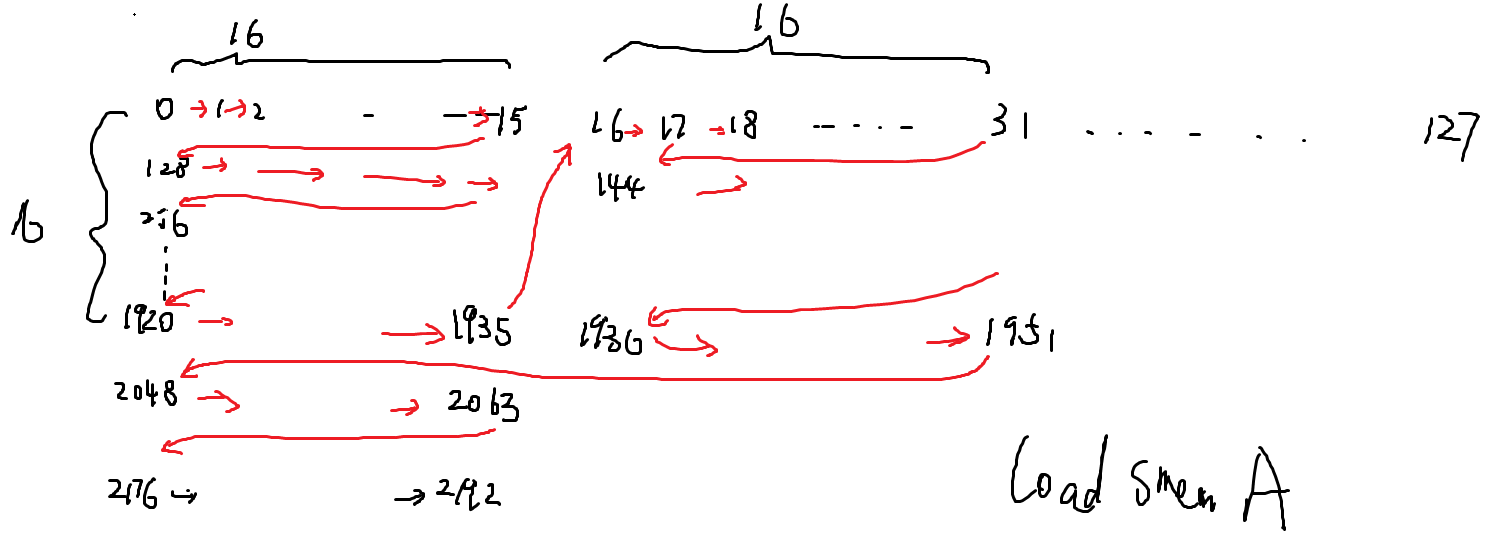 16 16
0 → 1 → 2 - - - 15 16 → 17 → 18 - - · · - 31 · · · · · · 127
128 → → → → 144 →
16
256
1920 → → 1935 1936 → → 1951
2048 → → 2063
2176 → → 2192
Load smem A